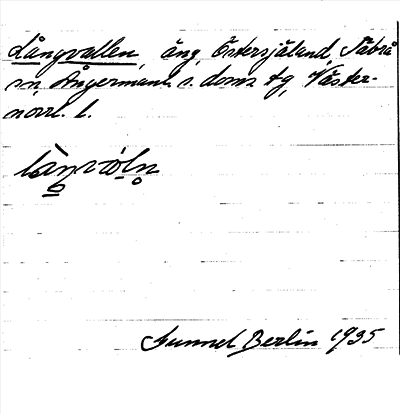 Långvallen, äng, Östersjäland, Säbrå
sn, Ångermanl. s. doms. tg, Väster-
norrl. l.
Gunnel Berlin 1935